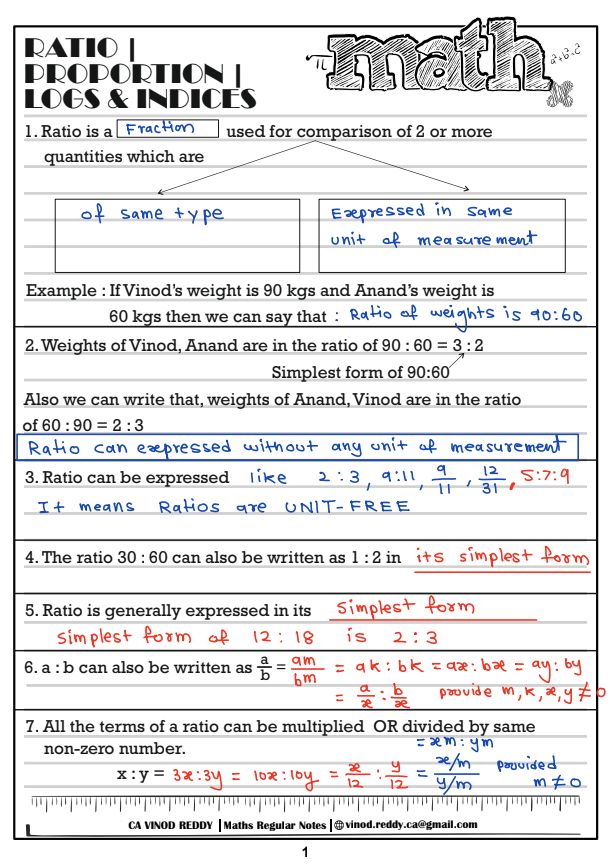 RATIO |
PROPORTION |
LOGS & INDICES
π math a²+b²=c²
1. Ratio is a Fraction used for comparison of 2 or more
quantities which are
of same type
Expressed in same
unit of measurement
Example : If Vinod's weight is 90 kgs and Anand's weight is
60 kgs then we can say that : Ratio of weights is 90:60
2. Weights of Vinod, Anand are in the ratio of 90 : 60 = 3 : 2
Simplest form of 90:60
Also we can write that, weights of Anand, Vinod are in the ratio
of 60 : 90 = 2 : 3
Ratio can expressed without any unit of measurement
3. Ratio can be expressed like 2:3, 9:11, 9/11, 12/31, 5:7:9
It means Ratios are UNIT-FREE
4. The ratio 30 : 60 can also be written as 1 : 2 in its simplest form
5. Ratio is generally expressed in its simplest form
simplest form of 12:18 is 2:3
6. a : b can also be written as a/b = am/bm = ak:bk = ax:bx = ay:by
= a/x : b/x provide m,k,x,y ≠ 0
7. All the terms of a ratio can be multiplied OR divided by same
non-zero number.
= xm:ym
x : y = 3x:3y = 10x:10y = x/12 : y/12 = x/m / y/m provided m ≠ 0
CA VINOD REDDY | Maths Regular Notes | vinod.reddy.ca@gmail.com
1